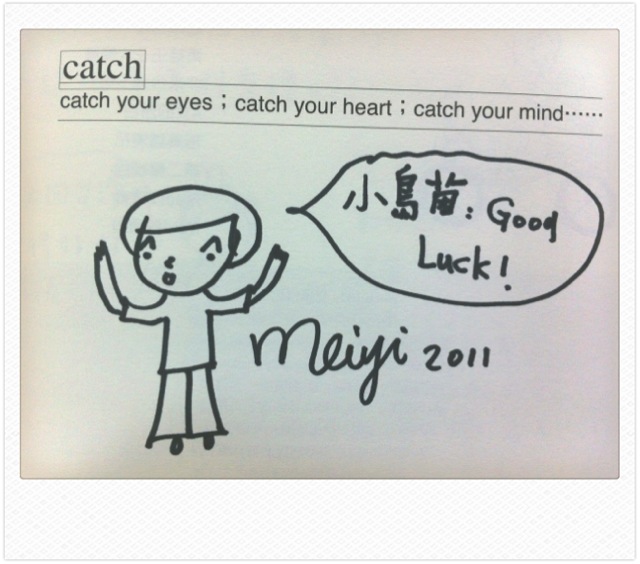 catch
catch your eyes；catch your heart；catch your mind⋯⋯
小鳥茵: Good
Luck!
Meiyi 2011